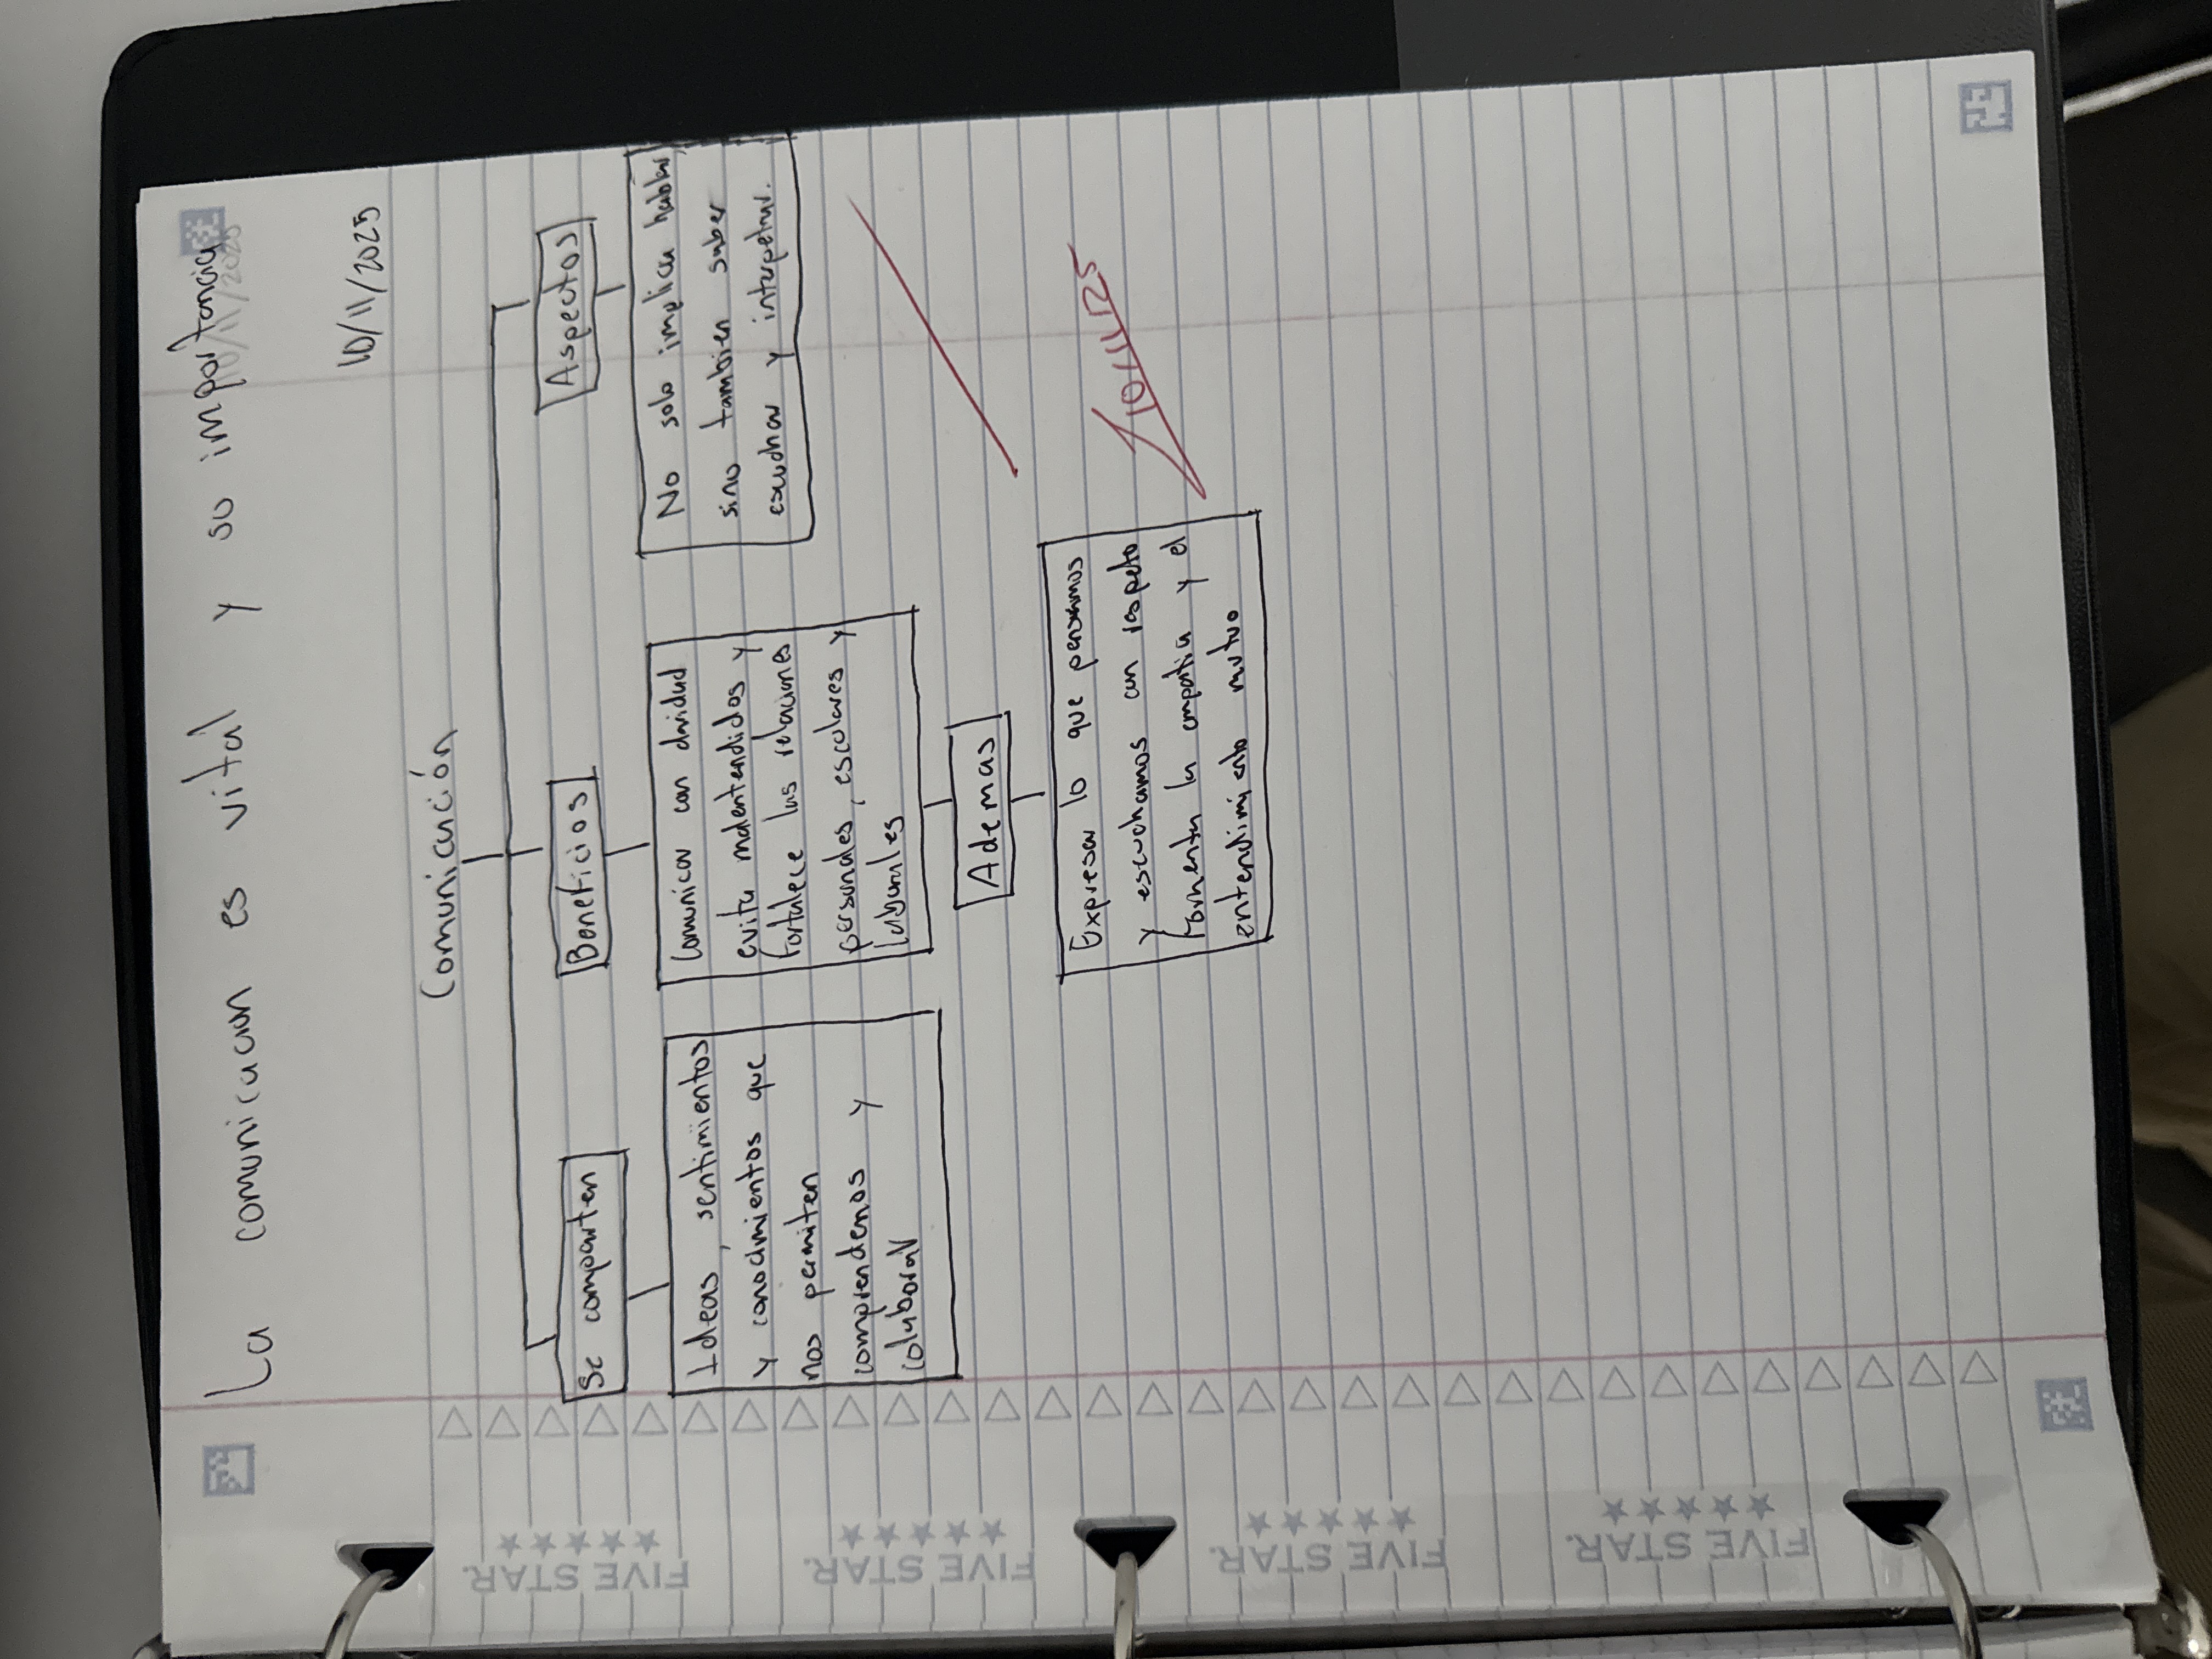 La comunicacion es vital y su importancia
10/11/2025
10/11/2025
Comunicación
Se comparten
Ideas, sentimientos
y conocimientos que
nos permiten
comprendenos y
colaborar
Beneficios
Comunicar con claridad
evita malentendidos y
fortalece las relaciones
personales, escolares y
laborales
Ademas
Expresar lo que pensamos
y escuchamos con respeto
fomenta la empatia y el
entendimiento mutuo
Aspectos
No solo implica hablar,
sino tambien saber
escuchar y interpetrar.
10/11/25
FIVE STAR.
FIVE STAR.
FIVE STAR.
FIVE STAR.